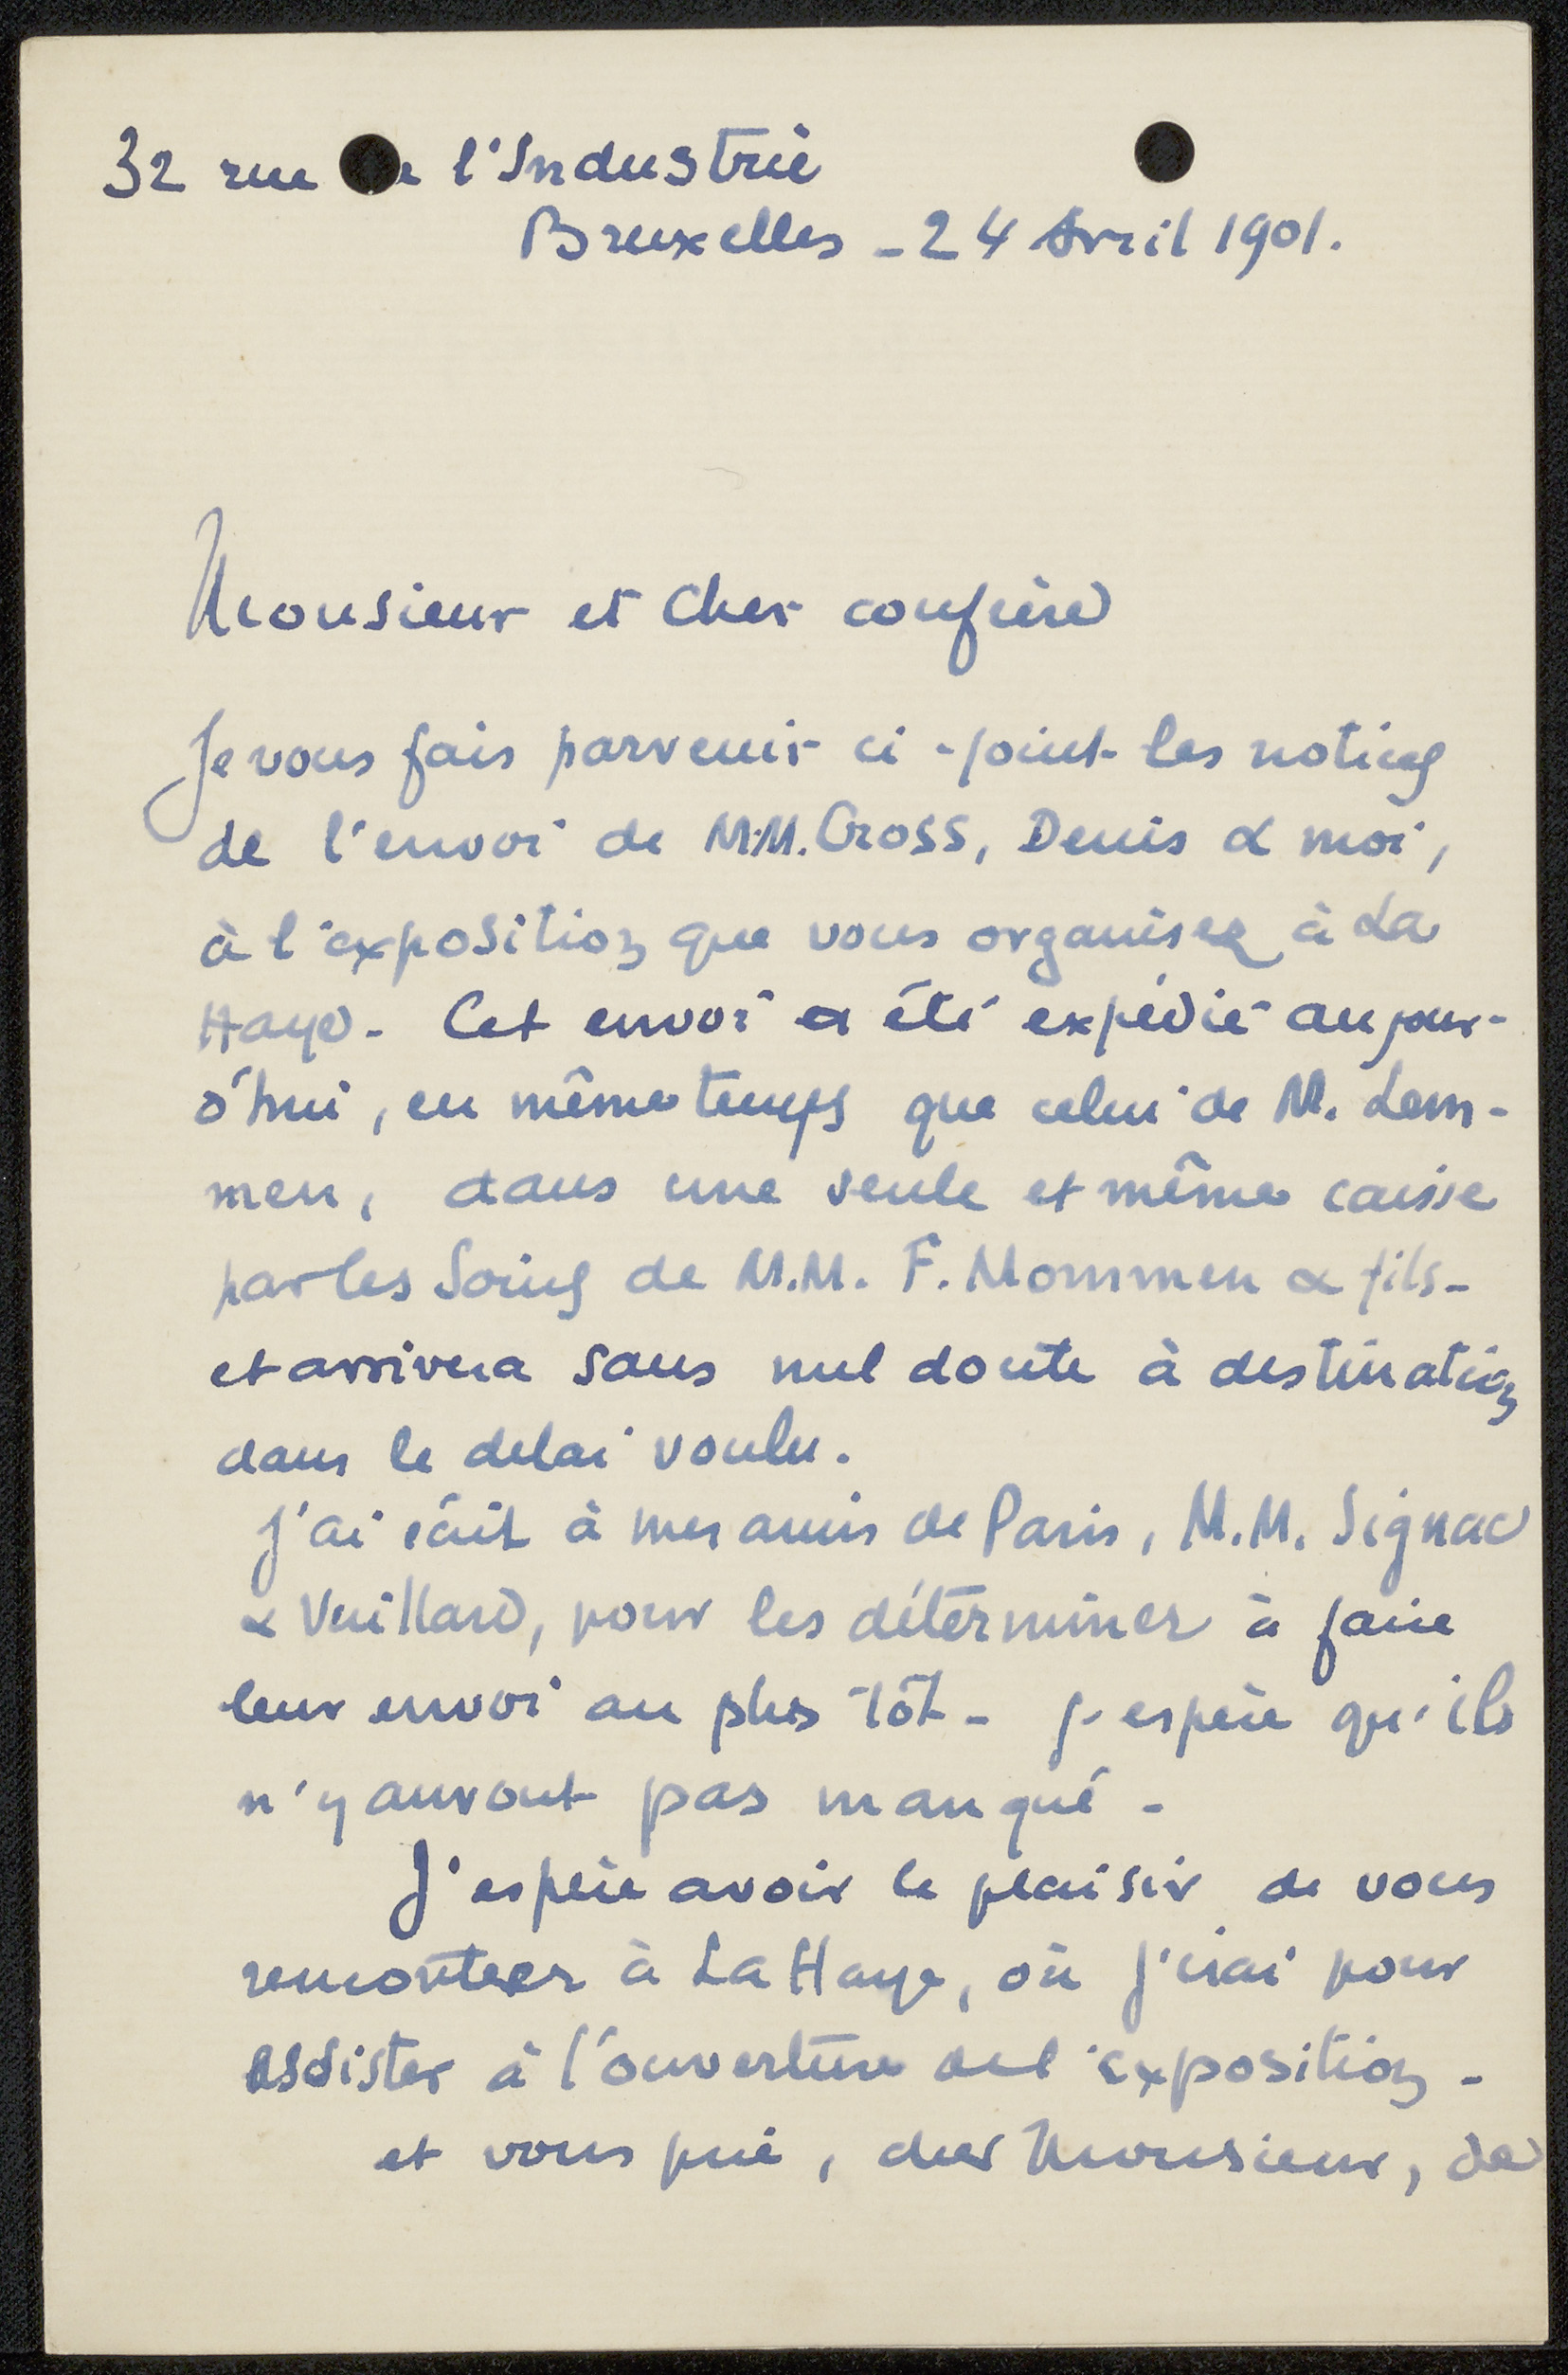 32 rue de l'Industrie
Bruxelles - 24 Avril 1901.
Monsieur et Cher confrère
Je vous fais parvenir ci-joint les notices
de l'envoi de M.M. Cross, Denis & moi,
à l'exposition que vous organisez à La
Haye - Cet envoi a été expédié aujour-
d'hui, en même temps que celui de M. Lem-
men, dans une seule et même caisse
par les soins de M.M. F. Mommen & fils -
et arrivera sans nul doute à destination
dans le delai voulu.
J'ai écrit à mes amis de Paris, M.M. Signac
& Vuillard, pour les déterminer à faire
leur envoi au plus tôt - j'espère qu'ils
n'y auront pas manqué -
J'espère avoir le plaisir de vous
rencontrer à La Haye, où j'irai pour
assister à l'ouverture de l'exposition -
et vous prie, cher Monsieur, de